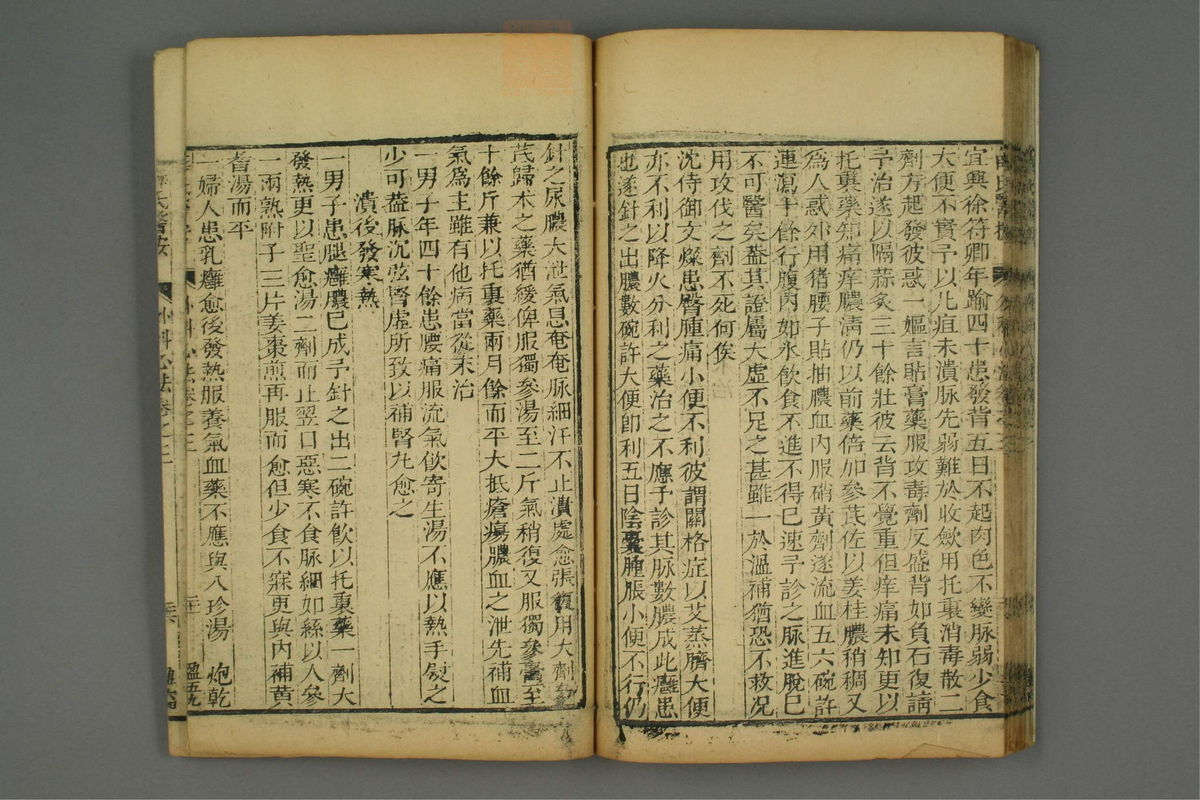 宜興徐符卿年踰四十患發背五日不起肉色不變脉弱少食
大便不實予以凡疽未潰脉先弱難於收歛用托裏消毒散二
劑方起發彼惑一嫗言貼膏藥服攻毒劑反盛背如負石復請
予治遂以隔蒜灸三十餘壯彼云背不覺重但痒痛未知更以
托裏藥知痛痒膿淸仍以前藥倍加參芪佐以姜桂膿稍稠又
爲人惑外用猪腰子貼抽膿血内服硝黄劑遂流血五六碗許
連瀉十餘行腹内如氷飲食不進不得巳速予診之脉進脫巳
不可醫矣盖其證屬大虛不足之甚雖一於溫補猶恐不救况
用攻伐之劑不死何俟
沈侍御文燦患臀腫痛小便不利彼謂關格症以艾蒸臍大便
亦不利以降火分利之藥治之不應予診其脉數膿成此癰患
也遂針之出膿數碗許大便卽利五日陰囊腫脹小便不行仍
針之尿膿大泄氣息奄奄脉細汗不止潰處愈張復用大劑
芪歸术之藥猶緩俾服獨參湯至二斤氣稍復又服獨參膏至
十餘斤兼以托裏藥兩月餘而平大抵瘡瘍膿血之泄先補血
氣爲主雖有他病當從末治
一男子年四十餘患腰痛服流氣飮寄生湯不應以熱手熨之
少可盖脉沉弦腎虛所致以補腎丸愈之
潰後發寒熱
一男子患腿癰膿巳成予針之出二碗許飮以托裏藥一劑大
發熱更以聖愈湯二劑而止翌日惡寒不食脉細如絲以人參
一兩熟附子三片姜棗煎再服而愈但少食不寐更與内補黄
耆湯而平
一婦人患乳癰愈後發熱服養氣血藥不應與八珍湯 炮乾